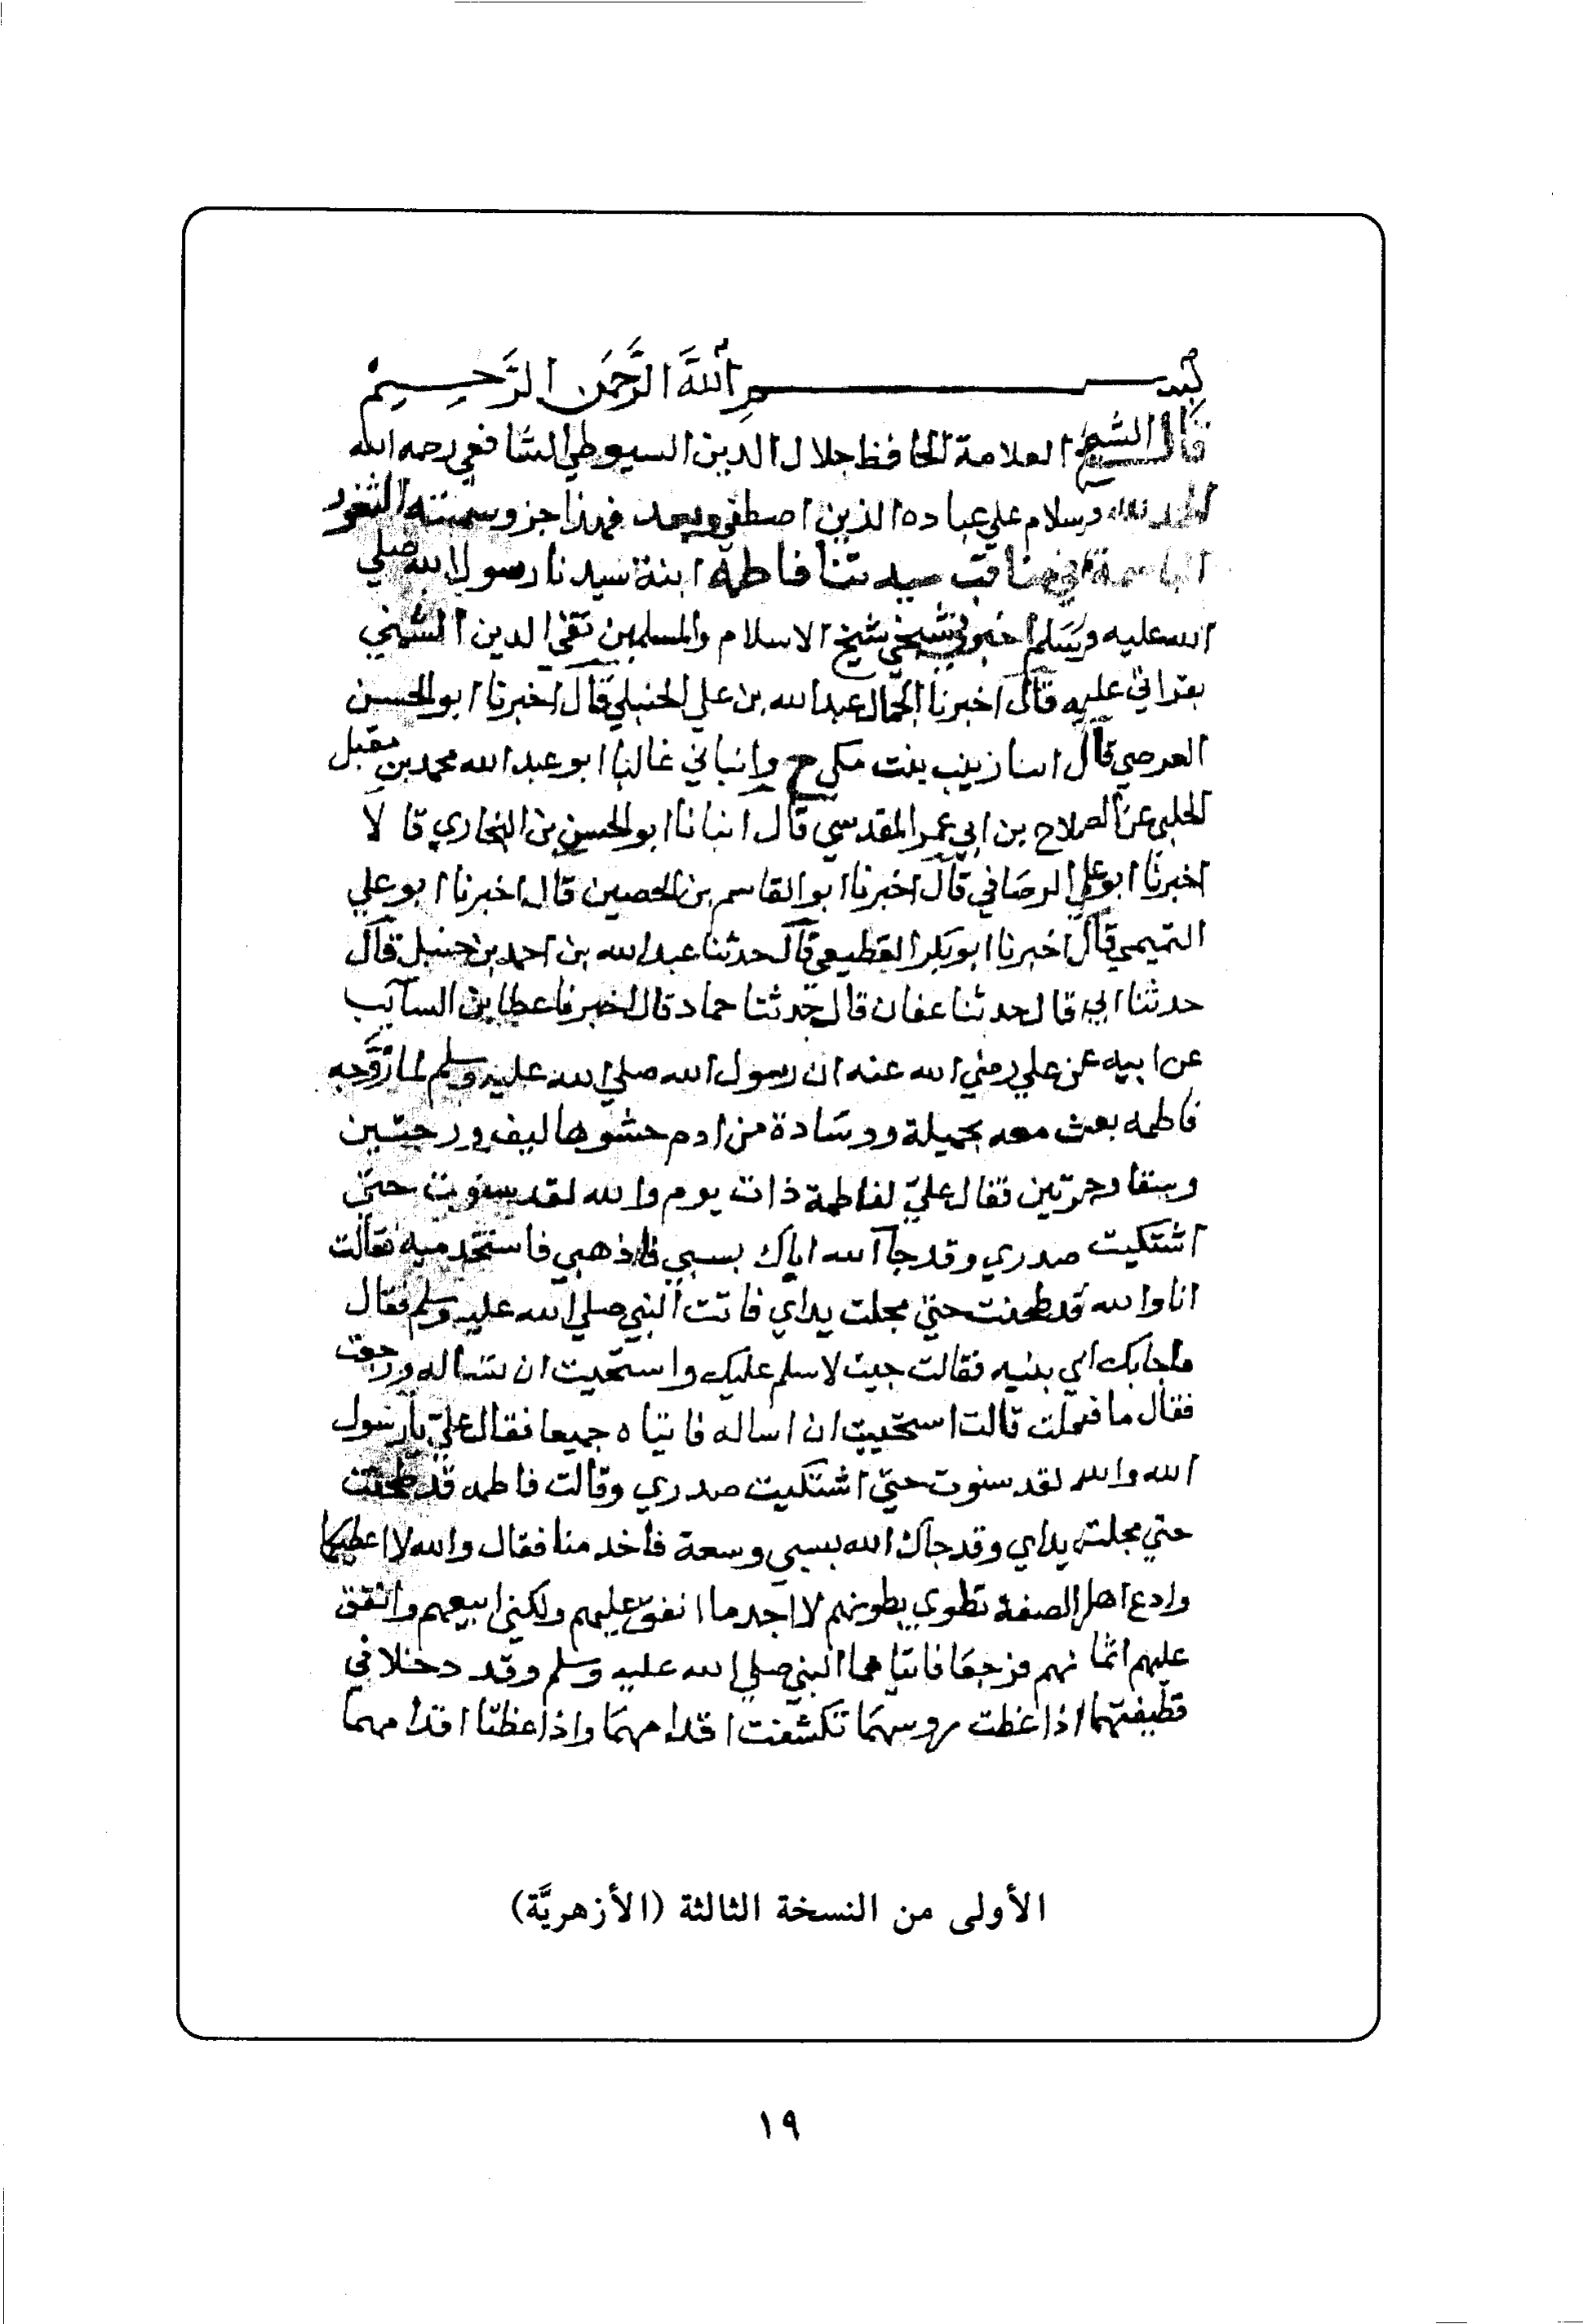 بسم الله الرحمن الرحيم
قال الشيخ العلامة الحافظ جلال الدين السيوطي الشافعي رحمه الله
الحمد لله وسلام علي عباده الذين اصطفي وبعد فهذا جزو سميته الثغور
الباسمة في مناقب سيدتنا فاطمة ابنة سيدنا رسول الله صلي
الله عليه وسلم اخبرني شيخي شيخ الاسلام والمسلمين تقي الدين الشمني
بقراتي عليه قال اخبرنا الجمال عبد الله بن علي الحنبلي قال اخبرنا ابو الحسن
العرضي قال انبا زينب بنت مكي ح وانباني غالبا ابو عبد الله محمد بن مقبل
الحلبي عن الصلاح بن ابي عمر المقدسي قال انبانا ابو الحسن بن البخاري قا لا
اخبرنا ابو علي الرصافي قال اخبرنا ابو القاسم بن الحصين قال اخبرنا ابو علي
التميمي قال اخبرنا ابو بكر القطيعي قال حدثنا عبد الله بن احمد بن حنبل قال
حدثنا ابي قال حدثنا عفان قال حدثنا حماد قال اخبرنا عطا بن السآيب
عن ابيه عن علي رضي الله عنه ان رسول الله صلي الله عليه وسلم لما زوجه
فاطمه بعث معه بخميلة ووسادة من ادم حشوها ليف ورحيتين
وسقا وجرتين فقال علي لفاطمة ذات يوم والله لقد سنوت حتي
اشتكيت صدري وقد جآ الله اباك بسبي فاذهبي فاستخدميه فقالت
انا والله قد طحنت حتي مجلت يداي فاتت النبي صلي الله عليه وسلم فقال
ما جابك اي بنيه فقالت جيت لاسلم عليك واستحيت ان تساله ورجعت
فقال ما فعلت قالت استحييت ان اساله فاتياه جميعا فقال علي يا رسول
الله والله لقد سنوت حتي اشتكيت صدري وقالت فاطمه قد طحنت
حتي مجلت يداي وقد جاك الله بسبي وسعة فاخدمنا فقال والله لا اعطيكما
وادع اهل الصفة تطوي بطونهم لا اجد ما انفق عليهم ولكني ابيعهم وانفق
عليهم اثمانهم فرجعا فاتاهما النبي صلي الله عليه وسلم وقد دخلا في
قطيفتهما اذا غطت روسهما تكشفت اقدامهما واذا غطتا اقدامهما
الأولى من النسخة الثالثة (الأزهريَّة)
١٩